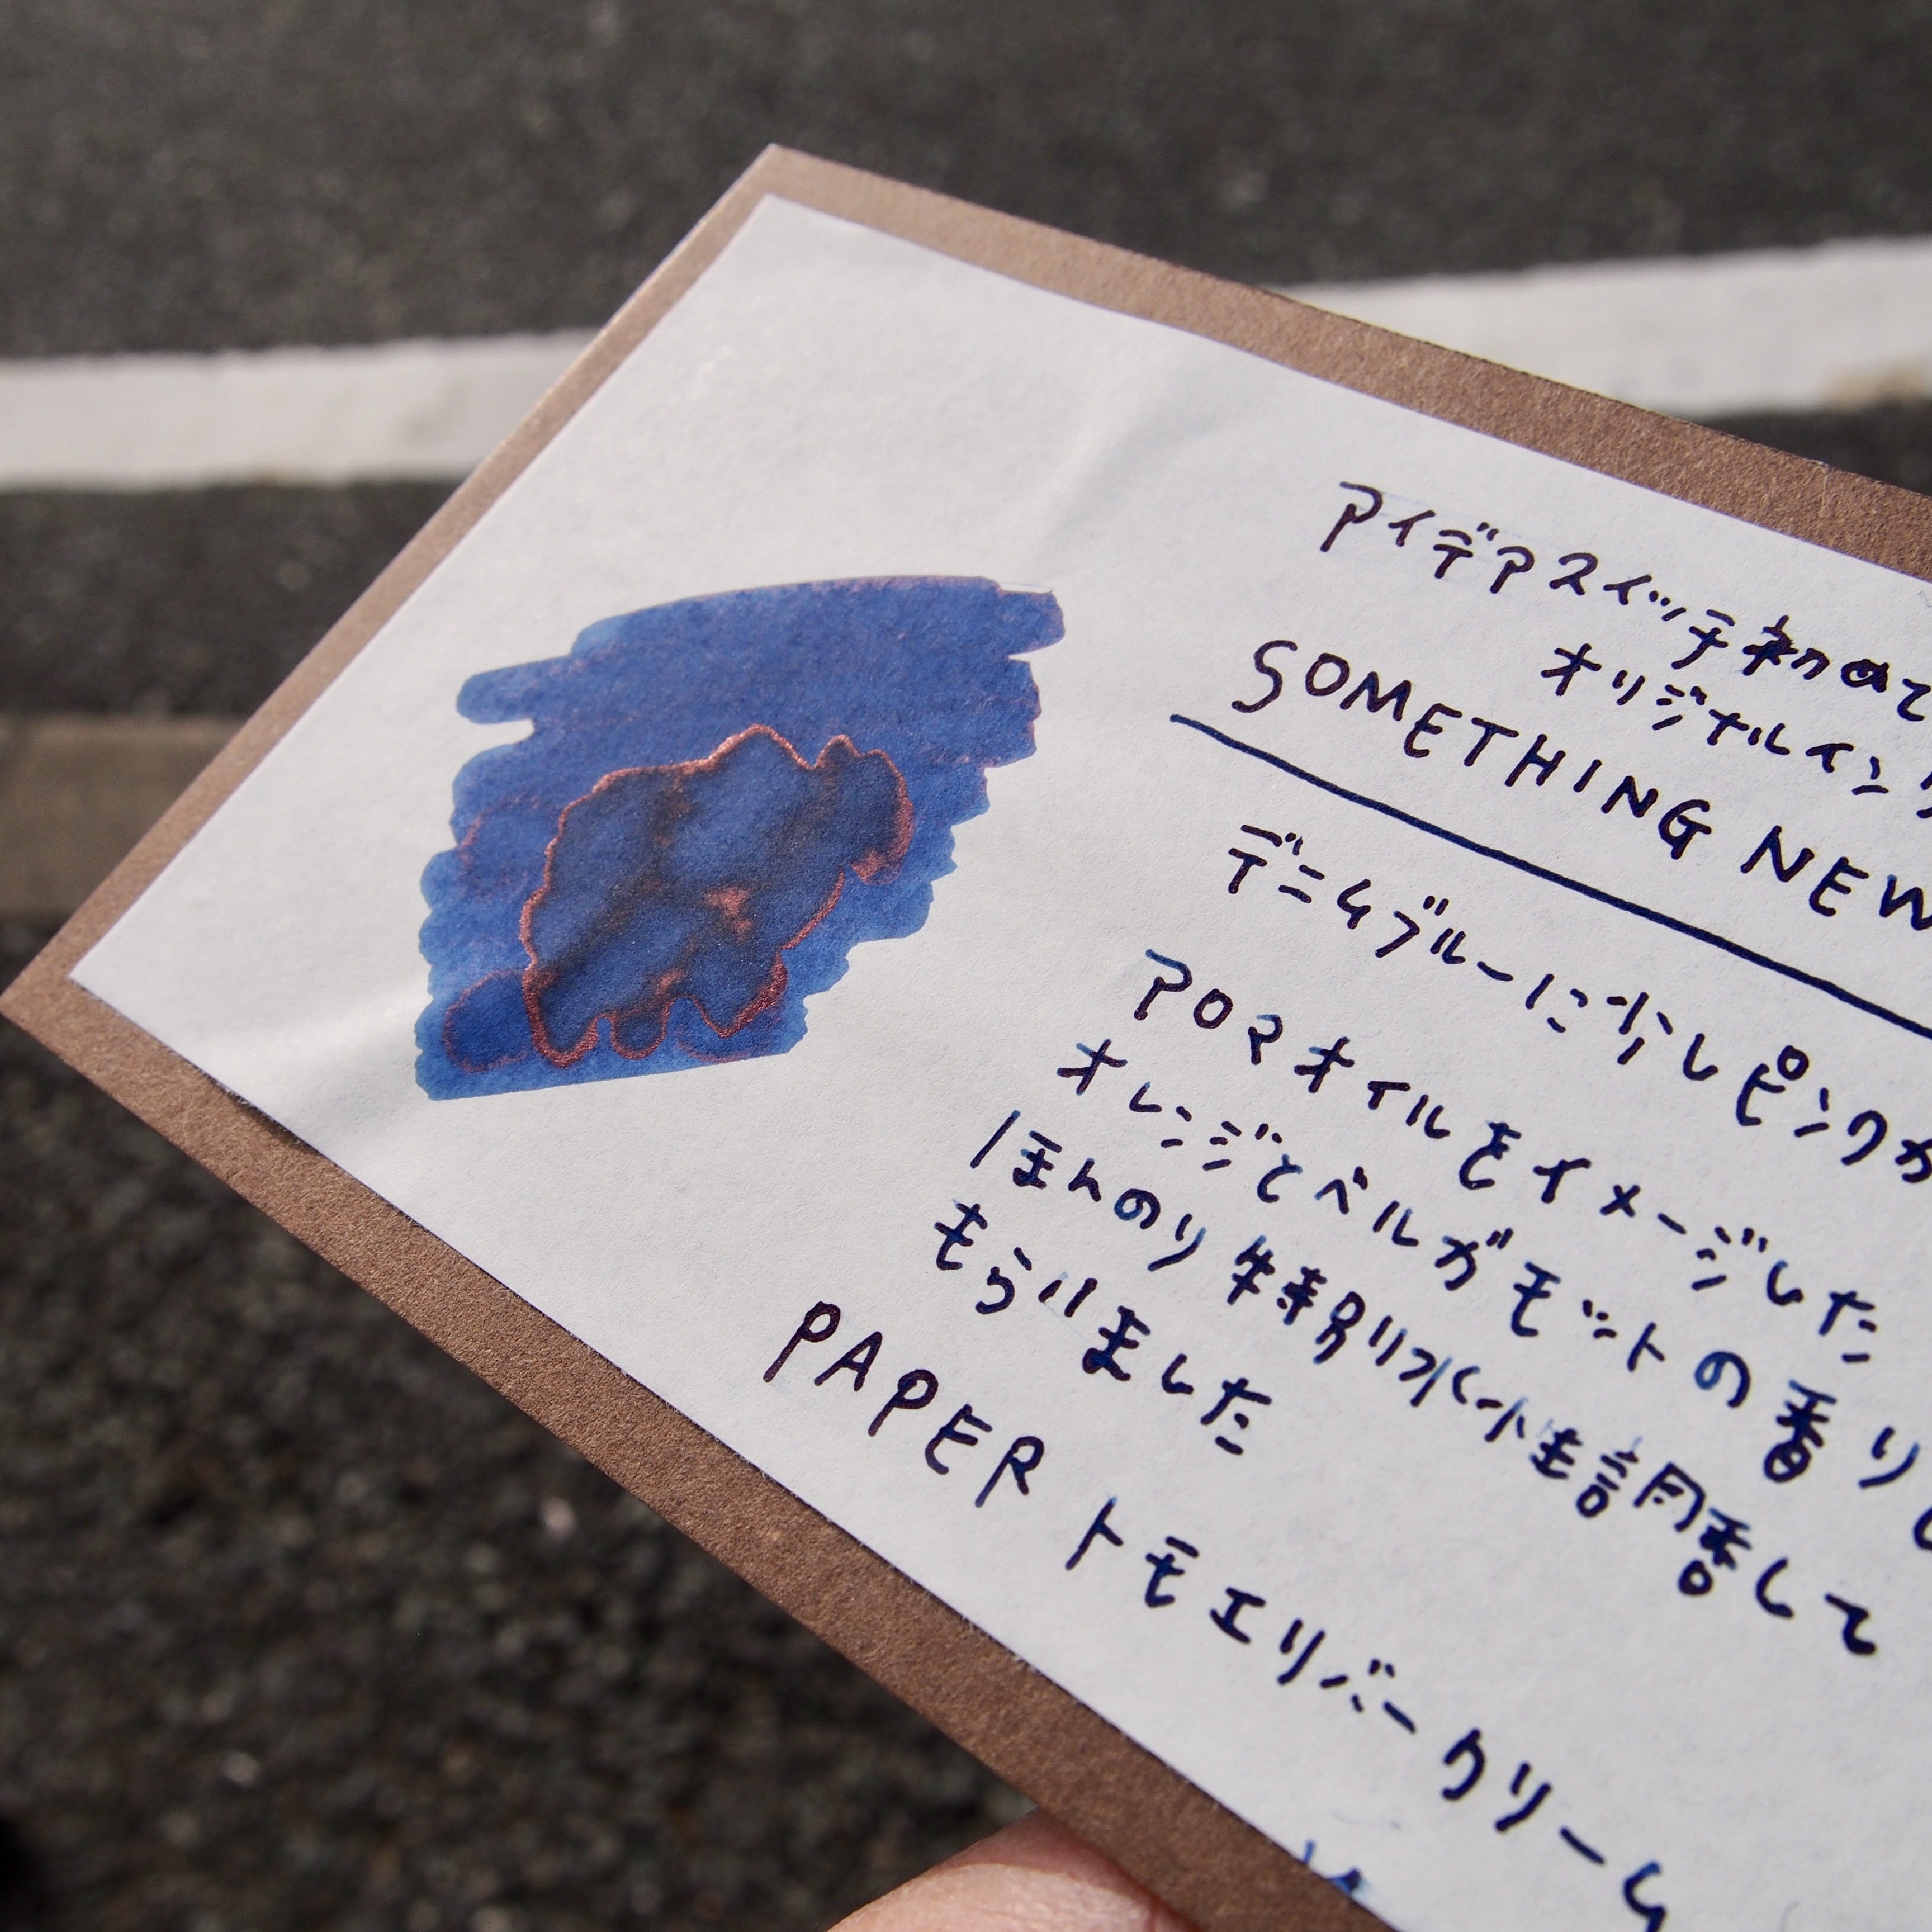 アイデアスイッチ初めて
オリジナルインク
SOMETHING NEW
デニムブルーに少しピンクが
アロマオイルをイメージした
オレンジとベルガモットの香りを
ほんのり 特別に水性調香して
もらいました
PAPER トモエリバークリーム